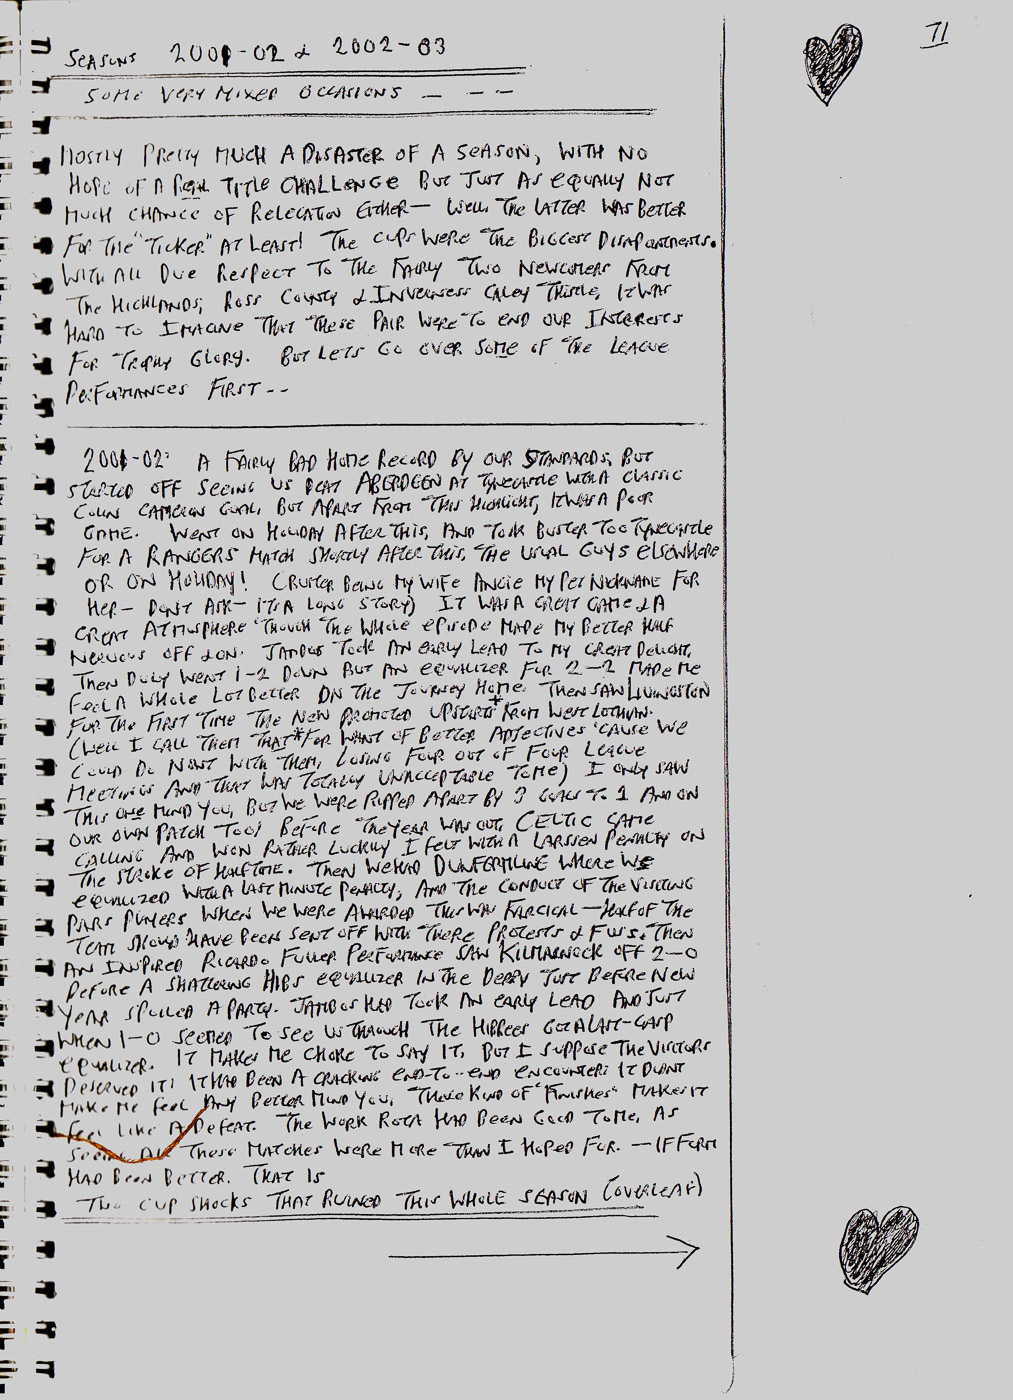 71
SEASONS 2001-02 & 2002-03
SOME VERY MIXED OCCASIONS - - - -
MOSTLY PRETTY MUCH A DISASTER OF A SEASON, WITH NO
HOPE OF A REAL TITLE CHALLENGE BUT JUST AS EQUALLY NOT
MUCH CHANCE OF RELEGATION EITHER - WELL THE LATTER WAS BETTER
FOR THE "TICKER" AT LEAST! THE CUPS WERE THE BIGGEST DISAPOINTMENTS.
WITH ALL DUE RESPECT TO THE FAIRLY TWO NEWCOMERS FROM
THE HIGHLANDS, ROSS COUNTY & INVERNESS CALEY THISTLE, IT WAS
HARD TO IMAGINE THAT THESE PAIR WERE TO END OUR INTERESTS
FOR TROPHY GLORY. BUT LETS GO OVER SOME OF THE LEAGUE
PERFORMANCES FIRST--
2001-02: A FAIRLY BAD HOME RECORD BY OUR STANDARDS, BUT
STARTED OFF SEEING US BEAT ABERDEEN AT TYNECASTLE WITH A CLASSIC
COLIN CAMERON GOAL, BUT APART FROM THIS HIGHLIGHT, IT WAS A POOR
GAME. WENT ON HOLIDAY AFTER THIS, AND TOOK BUSTER TOO TYNECASTLE
FOR A RANGERS MATCH SHORTLY AFTER THIS, THE USUAL GUYS ELSEWHERE
OR ON HOLIDAY! ( BEING MY WIFE ANGIE MY PET NICKNAME FOR
HER - DONT ASK - ITS A LONG STORY) IT WAS A GREAT GAME & A
GREAT ATMOSPHERE THOUGH THE WHOLE EPISODE MADE MY BETTER HALF
NERVOUS OFF & ON. JAMBOS TOOK AN EARLY LEAD TO MY GREAT DELIGHT,
THEN DULY WENT 1-2 DOWN BUT AN EQUALIZER FOR 2-2 MADE ME
FEEL A WHOLE LOT BETTER ON THE JOURNEY HOME. THEN SAW LIVINGSTON
FOR THE FIRST TIME THE NEW PROMOTED UPSTARTS* FROM WEST LOTHIAN.
(WELL I CALL THEM THAT* FOR WANT OF BETTER ADJECTIVES 'CAUSE WE
COULD DO NOWT WITH THEM, LOSING FOUR OUT OF FOUR LEAGUE
MEETINGS AND THAT WAS TOTALLY UNACCEPTABLE TO ME) I ONLY SAW
THIS ONE MIND YOU, BUT WE WERE RIPPED APART BY 3 GOALS TO 1 AND ON
OUR OWN PATCH TOO! BEFORE THE YEAR WAS OUT, CELTIC CAME
CALLING AND WON RATHER LUCKILY I FELT WITH A LARSSEN PENALTY ON
THE STROKE OF HALFTIME. THEN WE HAD DUNFERMLINE WHERE WE
EQUALIZED WITH A LAST MINUTE PENALTY, AND THE CONDUCT OF THE VISITING
PARS PLAYERS WHEN WE WERE AWARDED THIS WAS FARCICAL - HALF OF THE
TEAM SHOULD HAVE BEEN SENT OFF WITH THERE PROTESTS & . THEN
AN INSPIRED RICARDO FULLER PERFORMANCE SAW KILMARNOCK OFF 2-0
BEFORE A SHATTERING HIBS EQUALIZER IN THE DERBY JUST BEFORE NEW
YEAR SPOILED A PARTY. JAMBOS HAD TOOK AN EARLY LEAD AND JUST
WHEN 1-0 SEEMED TO SEE US THROUGH THE HIBEES GOT A LAST-GASP
EQUALIZER. IT MAKES ME CHOKE TO SAY IT, BUT I SUPPOSE THE VISITORS
DESERVED IT! IT HAD BEEN A CRACKING END-TO-END ENCOUNTER! IT DIDNT
MAKE ME FEEL ANY BETTER MIND YOU, THESE KIND OF "FINISHES" MAKES IT
FEEL LIKE A DEFEAT. THE WORK ROTA HAD BEEN GOOD TO ME, AS
SEEING ALL THESE MATCHES WERE MORE THAN I HOPED FOR. - IF FORM
HAD BEEN BETTER. THAT IS
TWO CUP SHOCKS THAT RUINED THIS WHOLE SEASON (OVERLEAF)